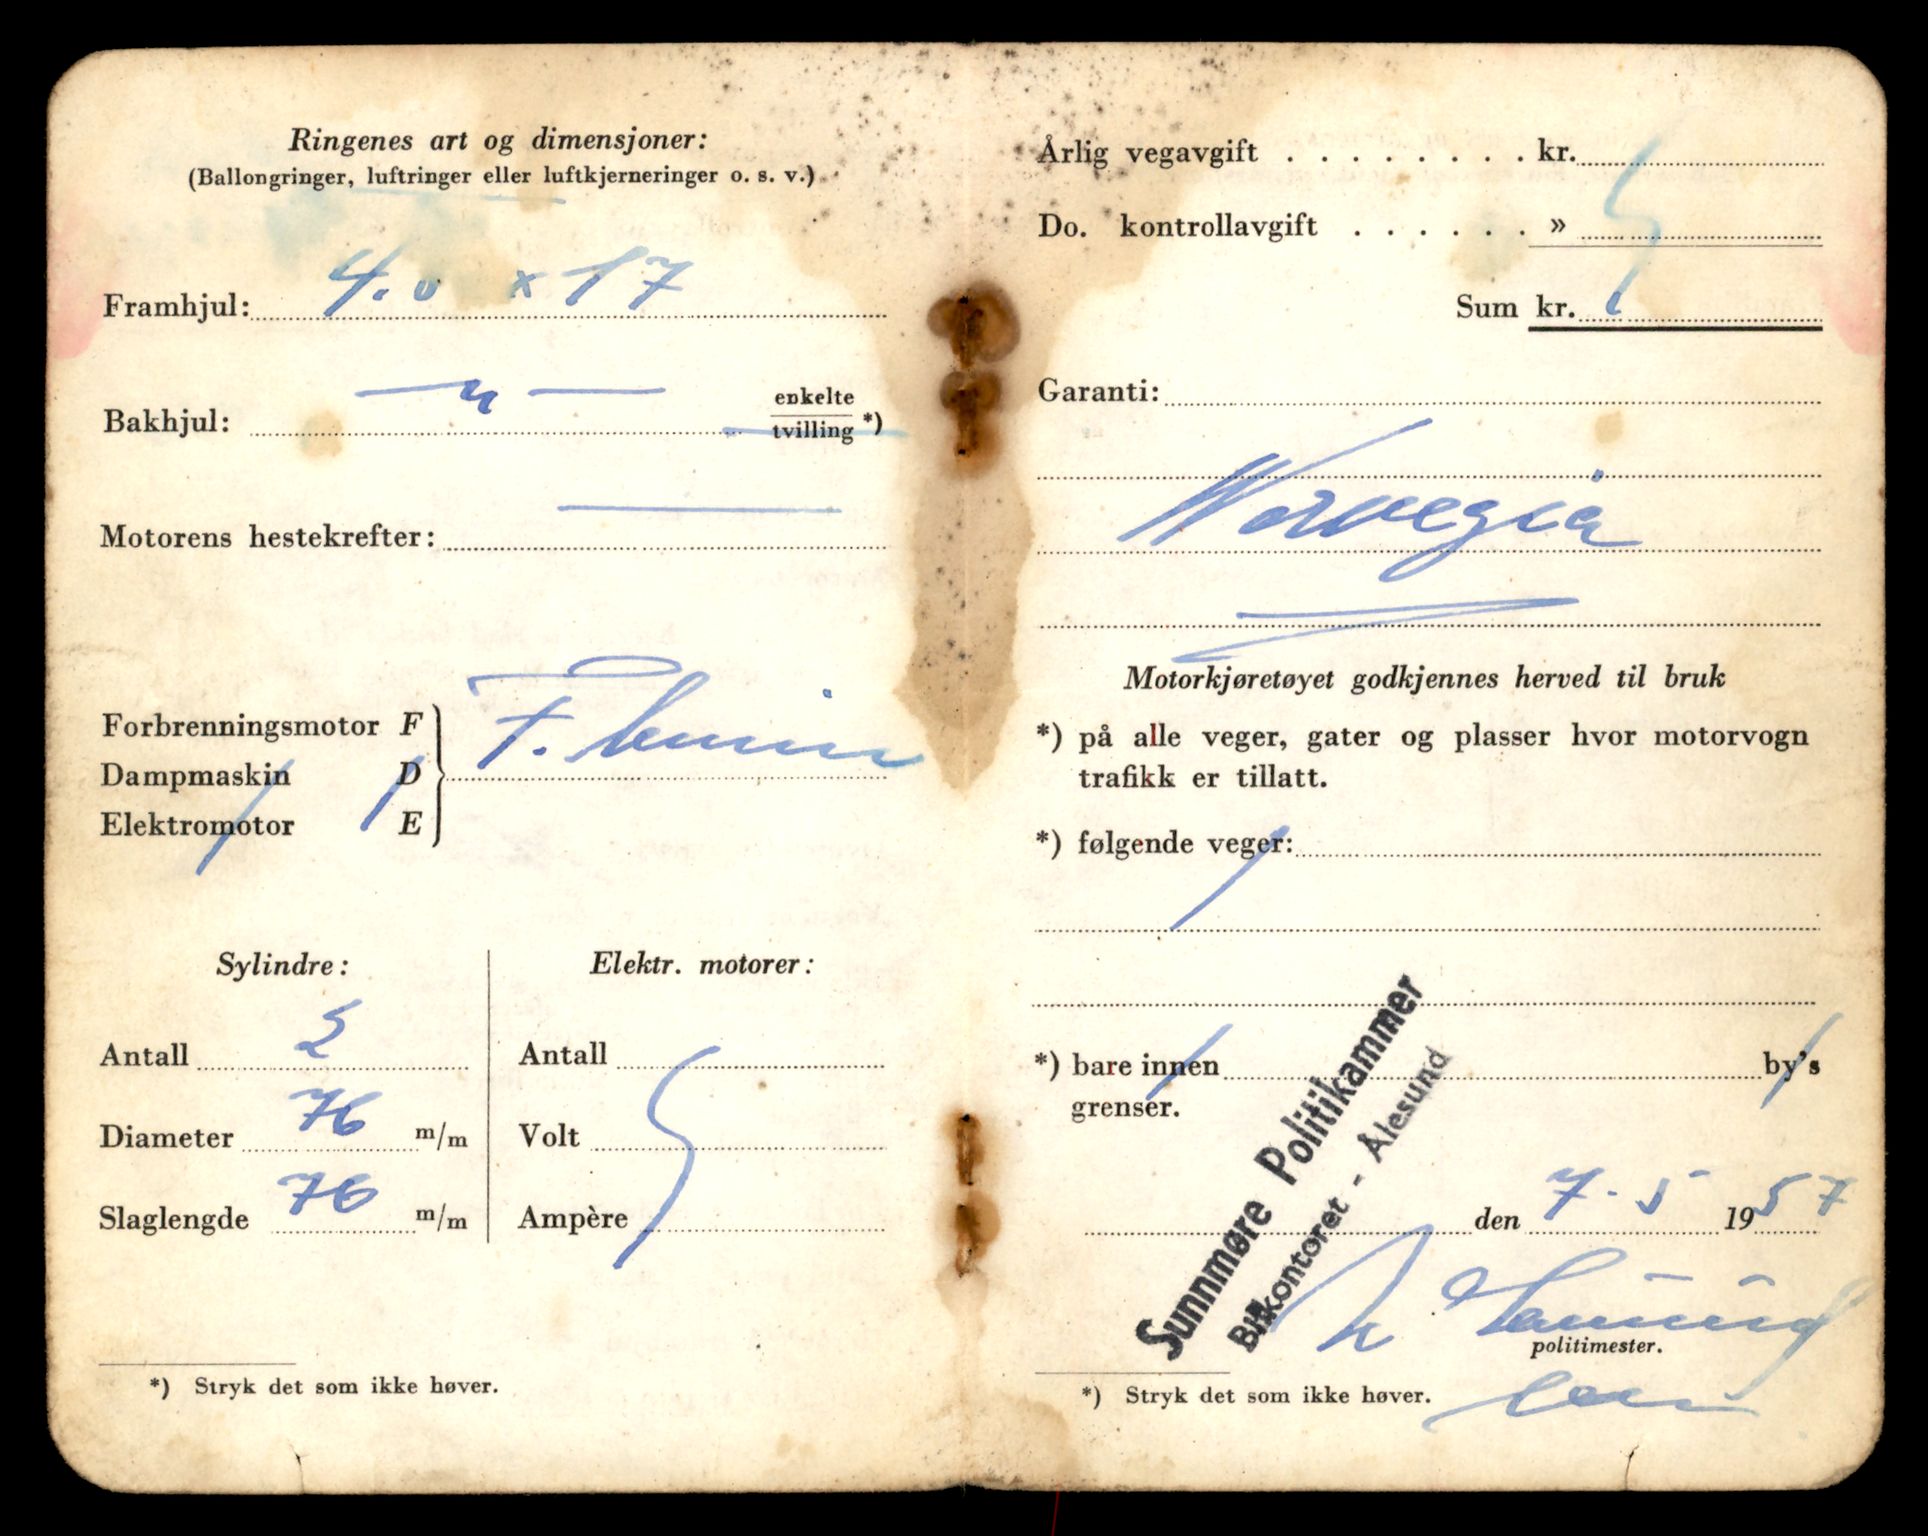 Ringenes art og dimensjoner:
(Ballongringer, luftringer eller luftkjerneringer o. s. v.)
Framhjul: 4.0 x 17
Bakhjul: — " — enkelte
tvilling *)
Motorens hestekrefter: —
Forbrenningsmotor F
Dampmaskin D
Elektromotor E
F.
Sylindre:
Antall 2
Diameter 76 m/m
Slaglengde 76 m/m
Elektr. motorer:
Antall
Volt
Ampère
*) Stryk det som ikke høver.
Årlig vegavgift . . . . . . . . kr.
Do. kontrollavgift . . . . . . »
Sum kr.
Garanti:
Norvegia
Motorkjøretøyet godkjennes herved til bruk
*) på alle veger, gater og plasser hvor motorvogn
trafikk er tillatt.
*) følgende veger:
*) bare innen by's
grenser.
Sunnmøre Politikammer
Bilkontoret - Ålesund
den 7.5 1957
politimester.
*) Stryk det som ikke høver.